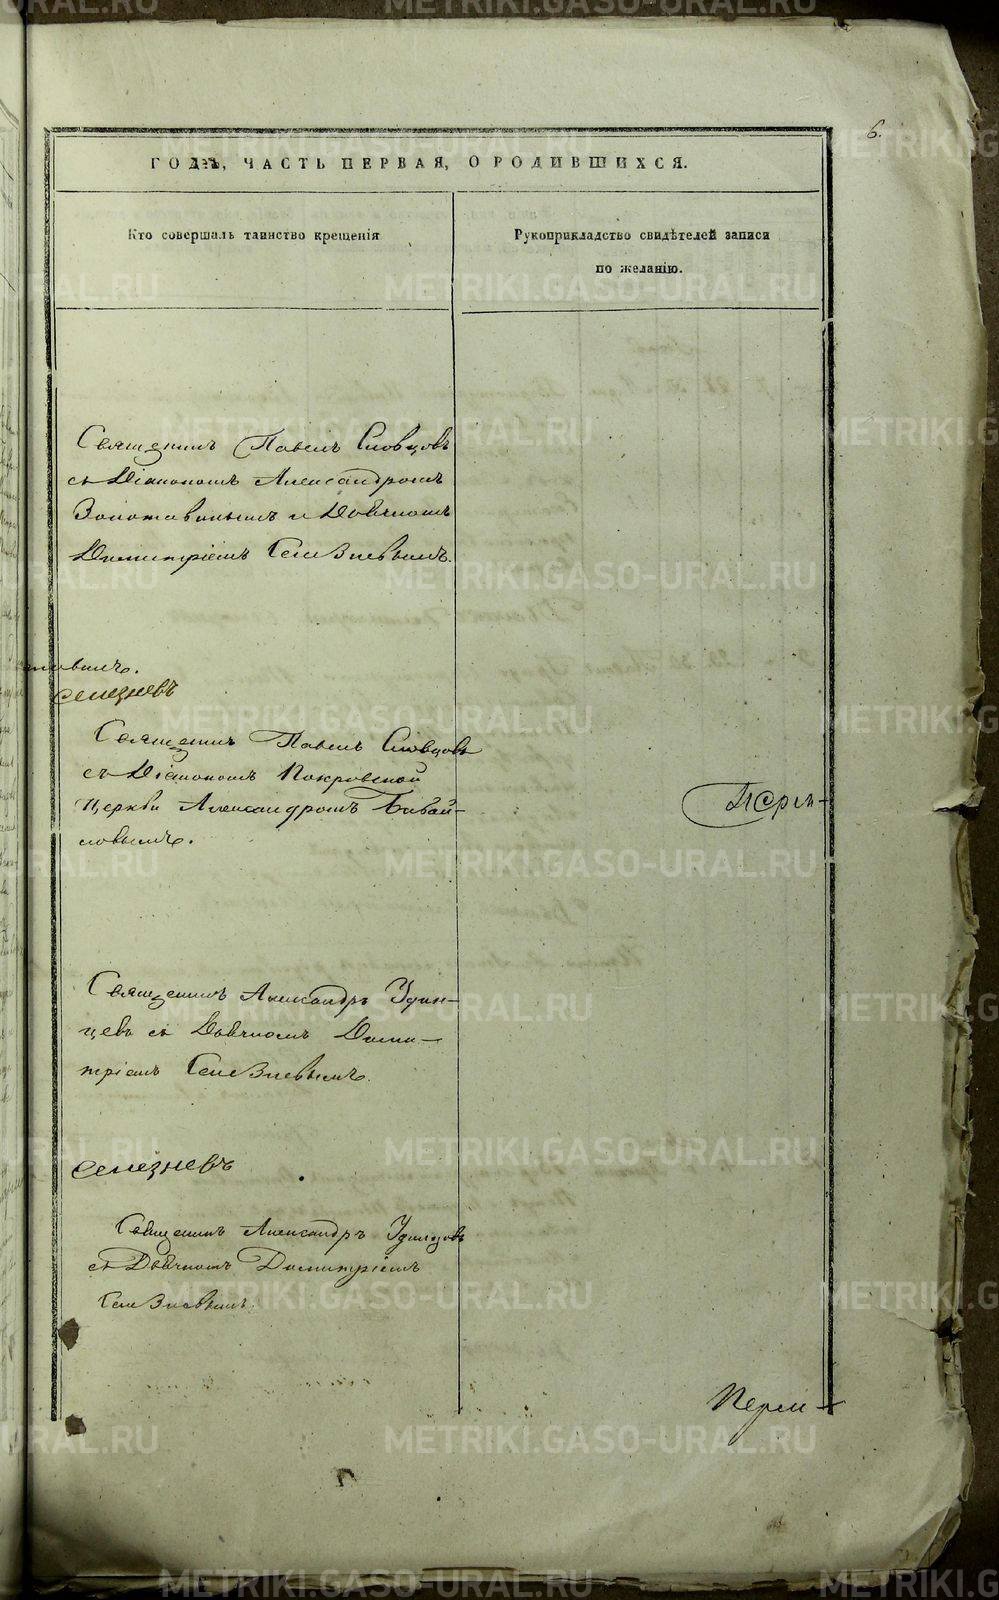 6.
ГОДЪ, ЧАСТЬ ПЕРВАЯ, О РОДИВШИХСЯ.
Кто совершалъ таинство крещенія
Рукоприкладство свидѣтелей записи
по желанію.
Священникъ Павелъ Словцовъ
съ Діакономъ Александромъ
Золотавинымъ и Дьячкомъ
Димитріемъ Селезневымъ.
Селезневъ
Священникъ Павелъ Словцовъ
съ Діакономъ Покровской
Церкви Александромъ
ловымъ.
Перм-
Священникъ Александръ Удин-
цевъ съ Дьячкомъ Дими-
тріемъ Селезневымъ.
Селезневъ
Священникъ Александръ Удинцовъ
съ Дьячкомъ Димитріемъ
Селезневымъ.
Перм-
METRIKI.GASO-URAL.RU